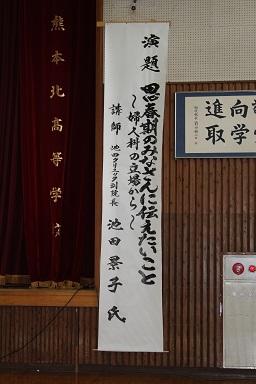 演題 思春期のみなさんに伝えたいこと
～婦人科の立場から～
講師 池田クリニック副院長 池田景子氏
熊本北高等学校
向学
進取